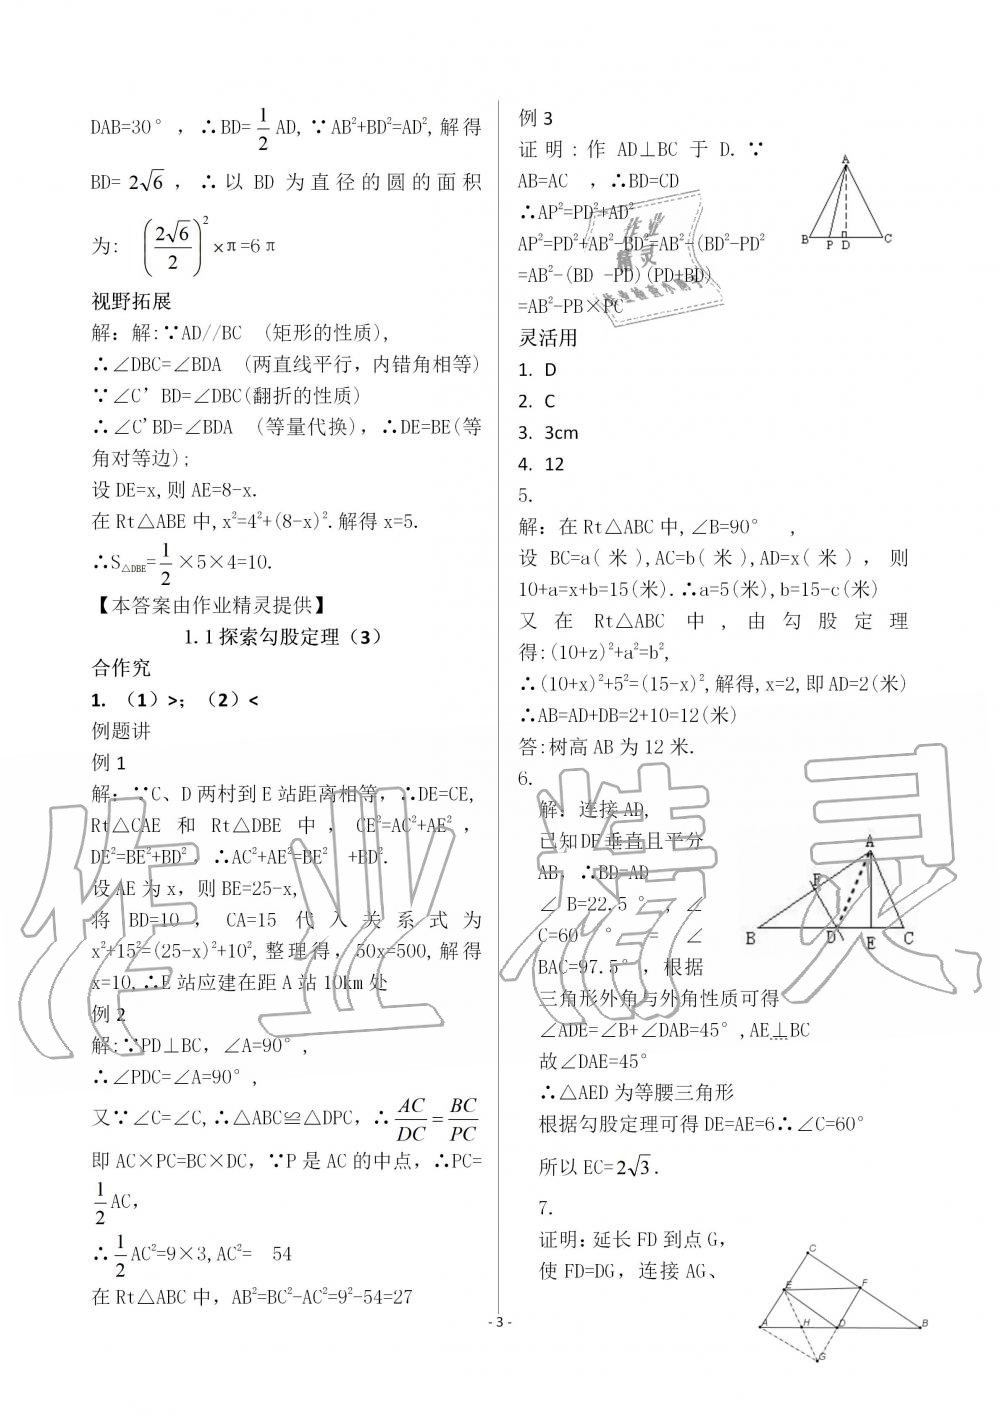 DAB=30°，∴BD=1/2 AD,∵AB²+BD²=AD²,解得
BD=2√6，∴以 BD 为直径的圆的面积
为：(2√6/2)²×π=6π
视野拓展
解：解:∵AD//BC （矩形的性质），
∴∠DBC=∠BDA （两直线平行，内错角相等）
∵∠C’BD=∠DBC(翻折的性质)
∴∠C'BD=∠BDA （等量代换），∴DE=BE(等
角对等边);
设 DE=x,则 AE=8-x.
在 Rt△ABE 中,x²=4²+(8-x)².解得 x=5.
∴S△DBE=1/2×5×4=10.
【本答案由作业精灵提供】
1.1 探索勾股定理（3）
合作究
1. （1）>；（2）<
例题讲
例 1
解：∵C、D 两村到 E 站距离相等，∴DE=CE,
Rt△CAE 和 Rt△DBE 中，CE²=AC²+AE²，
DE²=BE²+BD²，∴AC²+AE²=BE² +BD².
设 AE 为 x，则 BE=25-x,
将 BD=10，CA=15 代入关系式为
x²+15²=(25-x)²+10²,整理得，50x=500,解得
x=10,∴E 站应建在距 A 站 10km 处
例 2
解:∵PD⊥BC，∠A=90°,
∴∠PDC=∠A=90°,
又∵∠C=∠C,∴△ABC≌△DPC，∴AC/DC=BC/PC
即 AC×PC=BC×DC，∵P 是 AC 的中点，∴PC=
1/2 AC，
∴1/2 AC²=9×3,AC²= 54
在 Rt△ABC 中，AB²=BC²-AC²=9²-54=27
例 3
证明：作 AD⊥BC 于 D.∵
AB=AC ，∴BD=CD
∴AP²=PD²+AD²
AP²=PD²+AB²-BD²=AB²-(BD²-PD²
=AB²-(BD -PD)(PD+BD)
=AB²-PB×PC
A
B P D C
灵活用
1. D
2. C
3. 3cm
4. 12
5.
解：在 Rt△ABC 中,∠B=90° ,
设 BC=a(米),AC=b(米),AD=x(米)，则
10+a=x+b=15(米).∴a=5(米),b=15-c(米)
又在 Rt△ABC 中,由勾股定理
得:(10+z)²+a²=b²,
∴(10+x)²+5²=(15-x)²,解得,x=2,即 AD=2(米)
∴AB=AD+DB=2+10=12(米)
答:树高 AB 为 12 米.
6.
解：连接 AD,
已知 DF 垂直且平分
AB，∴BD=AD
∠B=22.5°，∠
C=60° ° = ∠
BAC=97.5°，根据
三角形外角与外角性质可得
∠ADE=∠B+∠DAB=45°,AE⊥BC
故∠DAE=45°
∴△AED 为等腰三角形
根据勾股定理可得 DE=AE=6∴∠C=60°
所以 EC=2√3.
A
F
B D E C
7.
证明：延长 FD 到点 G，
使 FD=DG，连接 AG、
C
E F
A H D B
G
- 3 -
作业精灵
作业
精灵